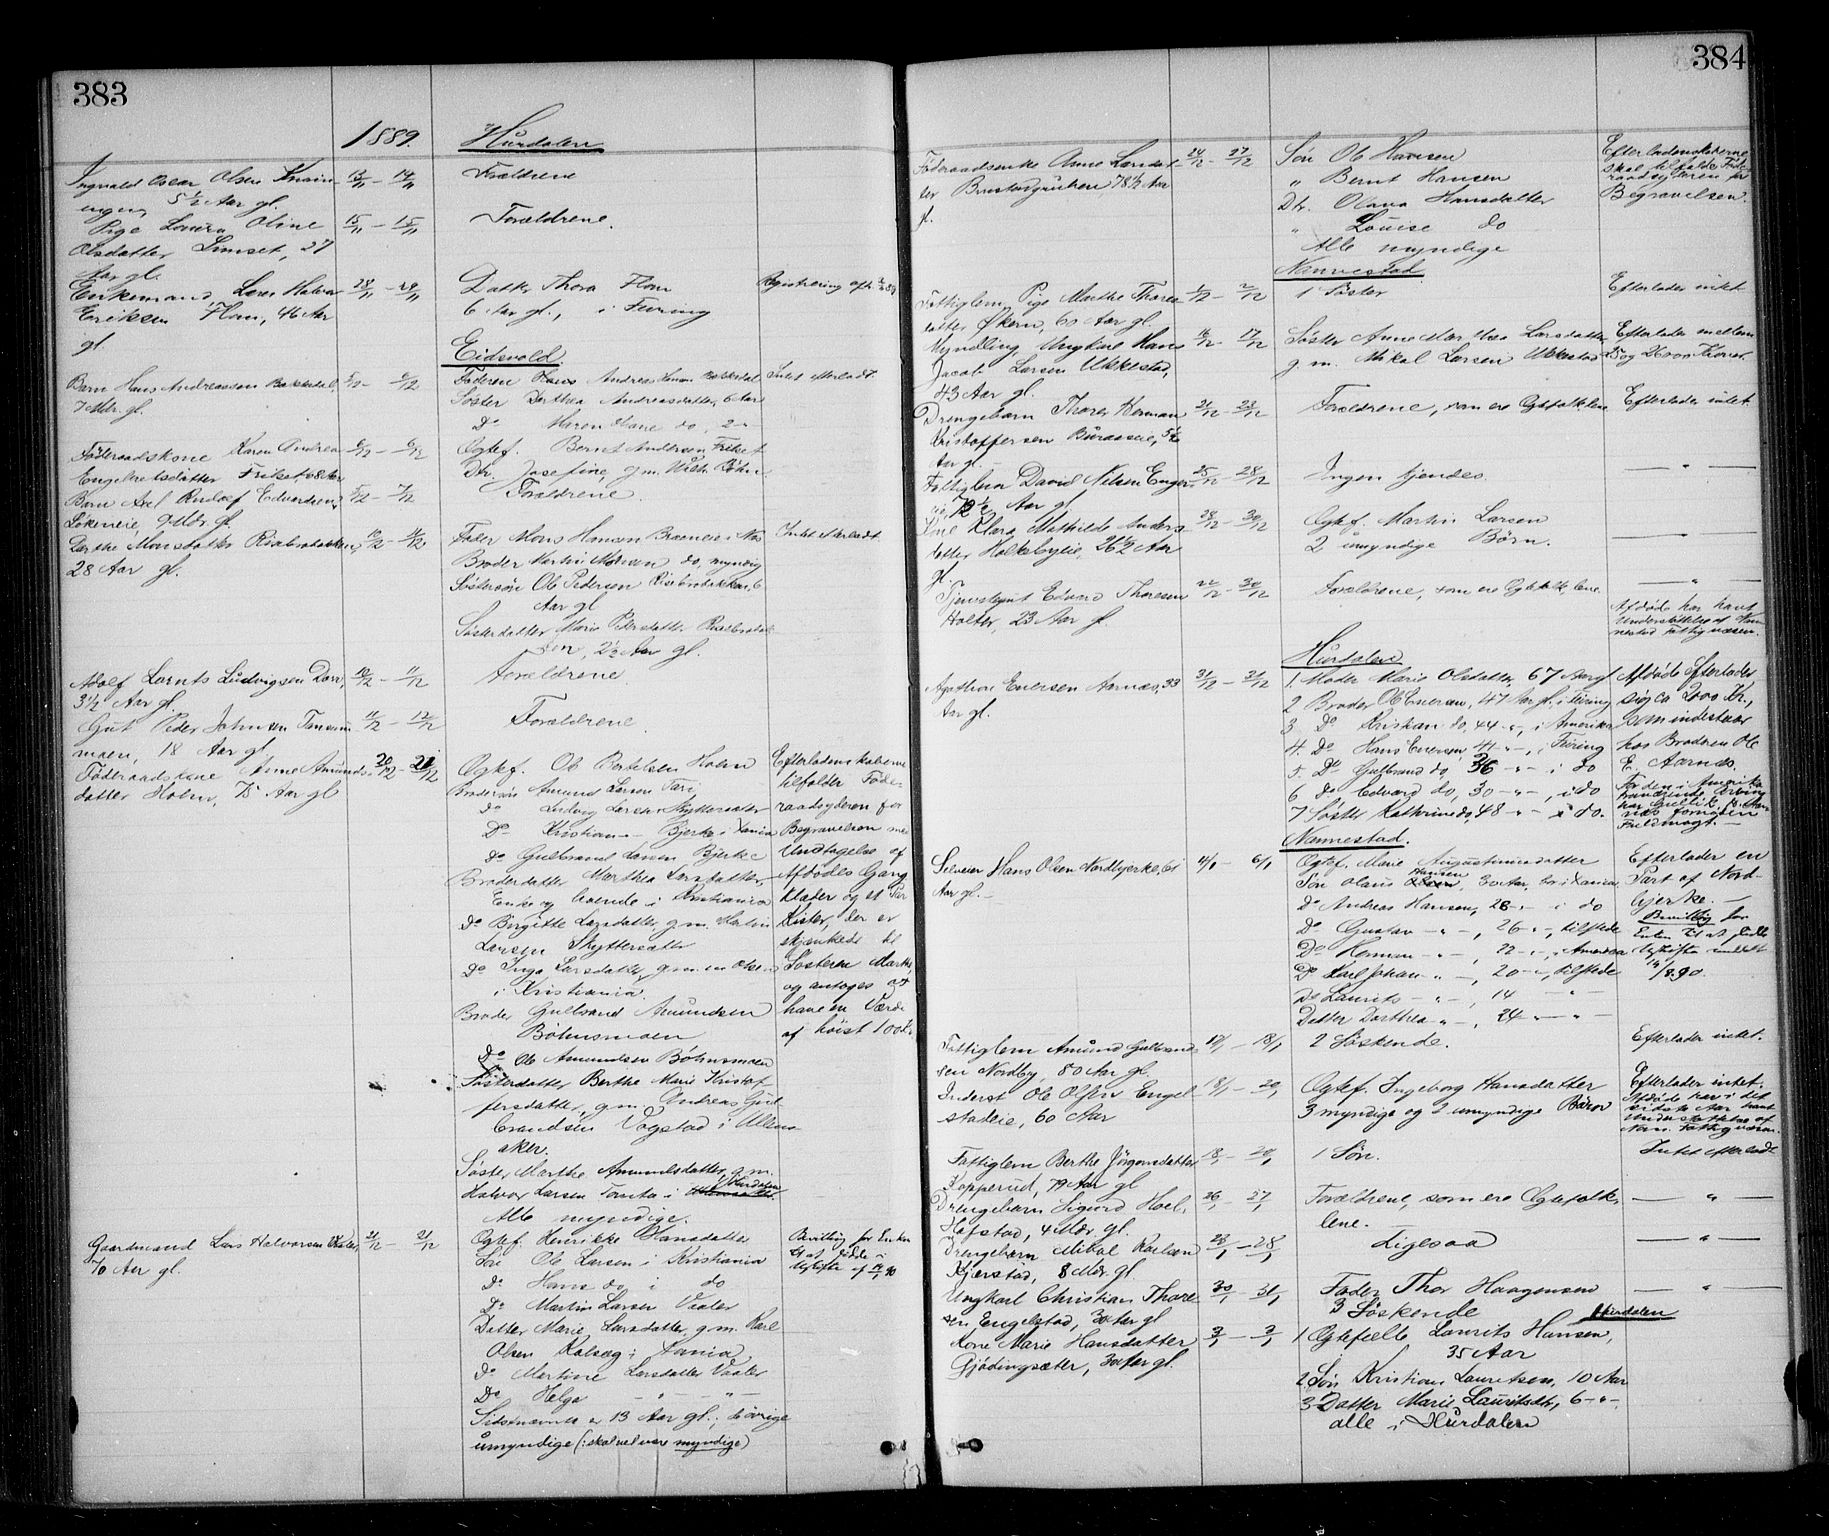 383
1889.
Hurdalen
Ingvald Oscar Olsen
5½ Aar gl.
13/11 — 14/11
Forældrene
Pige Laura Oline
Olsdatter Limset, 27
Aar gl.
15/11 — 15/11
Forældrene.
Enkemand Lars Halvor
Eriksen Flom, 46 Aar
gl.
28/11 — 29/11
Datter Thora Flom
6 Aar gl., i Feiring
Registrering afh.
Eidsvold.
Barn Hans Andreassen Bakkedal,
7 Mdr. gl.
5/12 — 6/12
Faderen Hans Andreas Hansen Bakkedal
Søster Dorthea Andreasdatter, 6 Aar
Do Maren Olane do, 2 "
Intet efterladt.
Føderaadskone Karen Andrea
Engebretsdatter Frilset, 68 Aar
6/12 — 6/12
Egtef. Bernt Andersen Frilset
Dtr. Josefine, g.m. Wilh. Bøhn
Barn Axel Rudolf Edvardsen
Løkeneie 9 Mdr. gl.
5/12 — 7/12
Forældrene.
Dorthe Monsdatter Risebrobakken,
28 Aar gl.
10/12 — 11/12
Fader Mons Hansen Braeneie i Næs
Broder Martin Monsen do, myndig
Søstersøn Ole Pedersen Risebrobakken, 6
Aar gl
Søsterdatter Marie Pedersdatter Risebrobak
ken, 2½ Aar gl.
Intet efterladt.
Adolf Lornts Ludvigsen Dorr,
3½ Aar gl.
10/12 — 11/12
Forældrene.
Gut Peder Johnsen Tansum
moen, 18 Aar gl.
11/12 — 12/12
Forældrene
Føderaadskone Anne Amunds-
datter Holm, 75 Aar gl
20/12 — 21/12
Egtef. Ole Bertelsen Holm
Brodersøn Amund Larsen Tari,
do Ludvig Larsen Skyttersæter
Do Kristian — " — Bjerke i Xania
do Gulbrand Larsen Bjerke
Broderdatter Marthea Larsdatter,
Enke og boende i Kristiania
do Birgitte Larsdatter, g.m. Martin
Larsen Skyttersæter
do Inga Larsdatter, g.m. en Olsen
i Kristiania.
Broder Gulbrand Amundsen
Bøhnsmoen
Do Ole Amundsen Bøhnsmoen
Søsterdatter Berthe Marie Kristof
fersdatter, g.m. Andreas Gul
brandsen Vogstad i Ullens
aker.
Søster Marthe Amundsdatter, g.m.
Halvor Larsen Tomta i Hurdalen
Alle myndige.
Efterladenskaberne
tilfalder Føde
raadsyderen for
Begravelsen med
Undtagelse af
Afdødes Gang
klæder og et Par
Kister, der er
skjænkede til
Søsteren Marthe
og antages at
have en Værdi
af høist 100 Kr.
Gaardmand Lars Halvorsen Vaaler,
70 Aar gl.
21/12 — 21/12
Egtef. Henrikke Hansdatter
Søn Ole Larsen i Kristiania
do Hans do i do
Do Martin Larsen Vaaler
Datter Marie Larsdatter, g.m. Karl
Olsen Kalsæg i Xania.
Do Martine Larsdatter Vaaler
Do Helga — " — " —
Sidstnævnte er 13 Aar gl., de øvrige
umyndige (: skal vel være myndige)
Bevilling for Enken
til at sidde i
Uskifte af 14/1 90

384
Føderaadsenke Anne Larsdat
ter Brustadgruben, 78½ Aar
gl.
24/12 — 27/12
Søn Ole Hansen
" Bernt Hansen
Dtr. Olava Hansdatter
" Louise do
Alle myndige
Efterladenskaberne
skal tilfalde Føde
raadsyderen for
Begravelsen.
Nannestad
Fattiglem Pige Marthe Thores
datter Økern, 60 Aar gl.
1/12 — 2/12
1 Søster
Efterlader intet.
Myndling, Ungkarl Hans
Jacob Larsen Ukkestad,
43 Aar gl.
16/12 — 17/12
Søster Anne Marthea Larsdatter,
g.m. Mikal Larsen Ukkestad
Efterlader mellem
25 og 2600 Kroner.
Drengebarn Thorer Herman
Kristoffersen Buraaseie, 5½
Aar gl.
21/12 — 23/12
Forældrene, som ere Egtefolkene
Efterlader intet.
Fattiglem David Nilsen Enger
eie, 72½ Aar gl
25/12 — 28/12
Ingen kjendes.
— " —
Kone Klara Mathilde Anders
datter Holksbyeie, 26½ Aar
gl.
28/12 — 30/12
Egtef. Martin Larsen
2 umyndige Børn.
— " —
Tjenestegut Edvard Thoresen
Holter, 23 Aar gl.
22/12 — 30/12
Forældrene, som ere Egtefolkene
— " —
Afdøde har havt
Understøttelse af Nan
nestad Fattigvæsen.
Hurdalen
Agathon Enersen Aarnæs, 33
Aar gl.
31/12 — 31/12
1 Moder Marie Olsdatter 67 Aar gl
2 Broder Ole Enersen, 47 Aar gl. i Feiring
3 Do Kristian do, 44 " , i Amerika
4 Do Hans Enersen 41 " , i Feiring
5 Do Gulbrand do, 36 " " i do
6 Do Edvard do, 30 " " , i do
7 Søster Kathrine do, 48 " " i do.
Afdøde efterlader
sig ca 2000 Kr.,
som indestaar
hos Broderen Ole
E. Aarnæs.
For den i Amerika
værende Arving
har Gullik P. Aar
næs fornøden
Fuldmagt. —
Nannestad.
Selveier Hans Olsen Nordbjerke, 61
Aar gl. —
4/1 — 6/1
Egtef. Marie Augustinusdatter
Søn Olaus Hansen, 30 Aar, bor i Xania
Do Andreas Hansen, 28 " i do
Do Gustav — " —, 26 — " —, tilstede
Do Herman — " —, 22 — " —, i Amerika
Do Karl Johan — " —, 20 — " —, tilstede
Do Laurits — " —, 14 — " —
Datter Dorthea — " —, 24 — " —
Efterlader en
Part af Nord-
bjerke. —
Bevilling for
Enken til at sidde
i Uskifte meddelt
14/8.90.
Fattiglem Amund Gulbrand
sen Nordby 80 Aar gl.
17/1 — 18/1
2 Søskende.
Efterlader intet.
Inderst Ole Olsen Engel
stadeie, 60 Aar
18/1 — 20/1
Egtef. Ingeborg Hansdatter
3 myndige og 2 umyndige Børn
Efterlader intet.
Afdøde har i det
sidste Aar havt
Understøttelse af
Nan. Fattigvæsen.
Fattiglem Berthe Jørgensdatter
Kopperud, 79 Aar gl
18/1 — 20/1
1 Søn.
Intet efterladt
Drengebarn Sigurd Hoel,
Hofstad, 4 Mdr. gl.
26/1 — 27/1
Forældrene, som ere Egtefolk
ene. —
— " —
Drengebarn Mikal Karlsen
Kjærstad, 8 Mdr. gl.
28/1 — 28/1
Ligesaa
— " —
Ungkarl Christian Thore
sen Engelstad, 30 Aar gl
30/1 — 31/1
Fader Thor Haagensen
3 Søskende
— " —
Hurdalen
Kone Marie Hansdatter
Gjødingsæter, 30 Aar gl.
3/1 — 3/1
1 Egtefælle Laurits Hansen,
35 Aar
2 Søn Kristian Lauritsen, 10 Aar
3 Datter Marie Lauritsdtr, 6 — " —
alle i Hurdalen